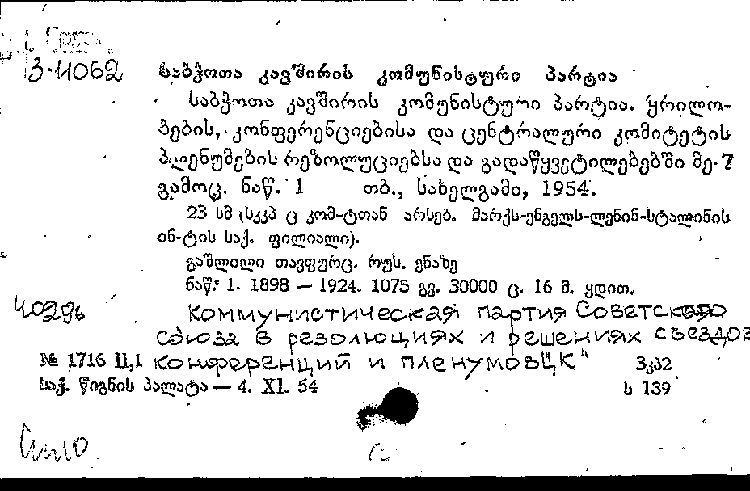 3-11062
საბჭოთა კავშირის კომუნისტური პარტია
საბჭოთა კავშირის კომუნისტური პარტია. ყრილო-
ბების, კონფერენციებისა და ცენტრალური კომიტეტის
პლენუმების რეზოლუციებსა და გადაწყვეტილებებში მე-7
გამოც. ნაწ. 1 თბ., სახელგამი, 1954.
23 სმ (სკკპ ც კომ-ტთან არსებ. მარქს-ენგელს-ლენინ-სტალინის
ინ-ტის საქ. ფილიალი).
გაშლილი თავფურც. რუს. ენაზე
ნაწ: 1. 1898 — 1924. 1075 გვ. 30000 ც. 16 მ. ყდით.
40296
Коммунистическая партия Советского
Союза в резолюциях и решениях съездов
конференций и пленумов ЦК"
№ 1716 II,1 3კპ2
საქ. წიგნის პალატა — 4. XI. 54 ს 139